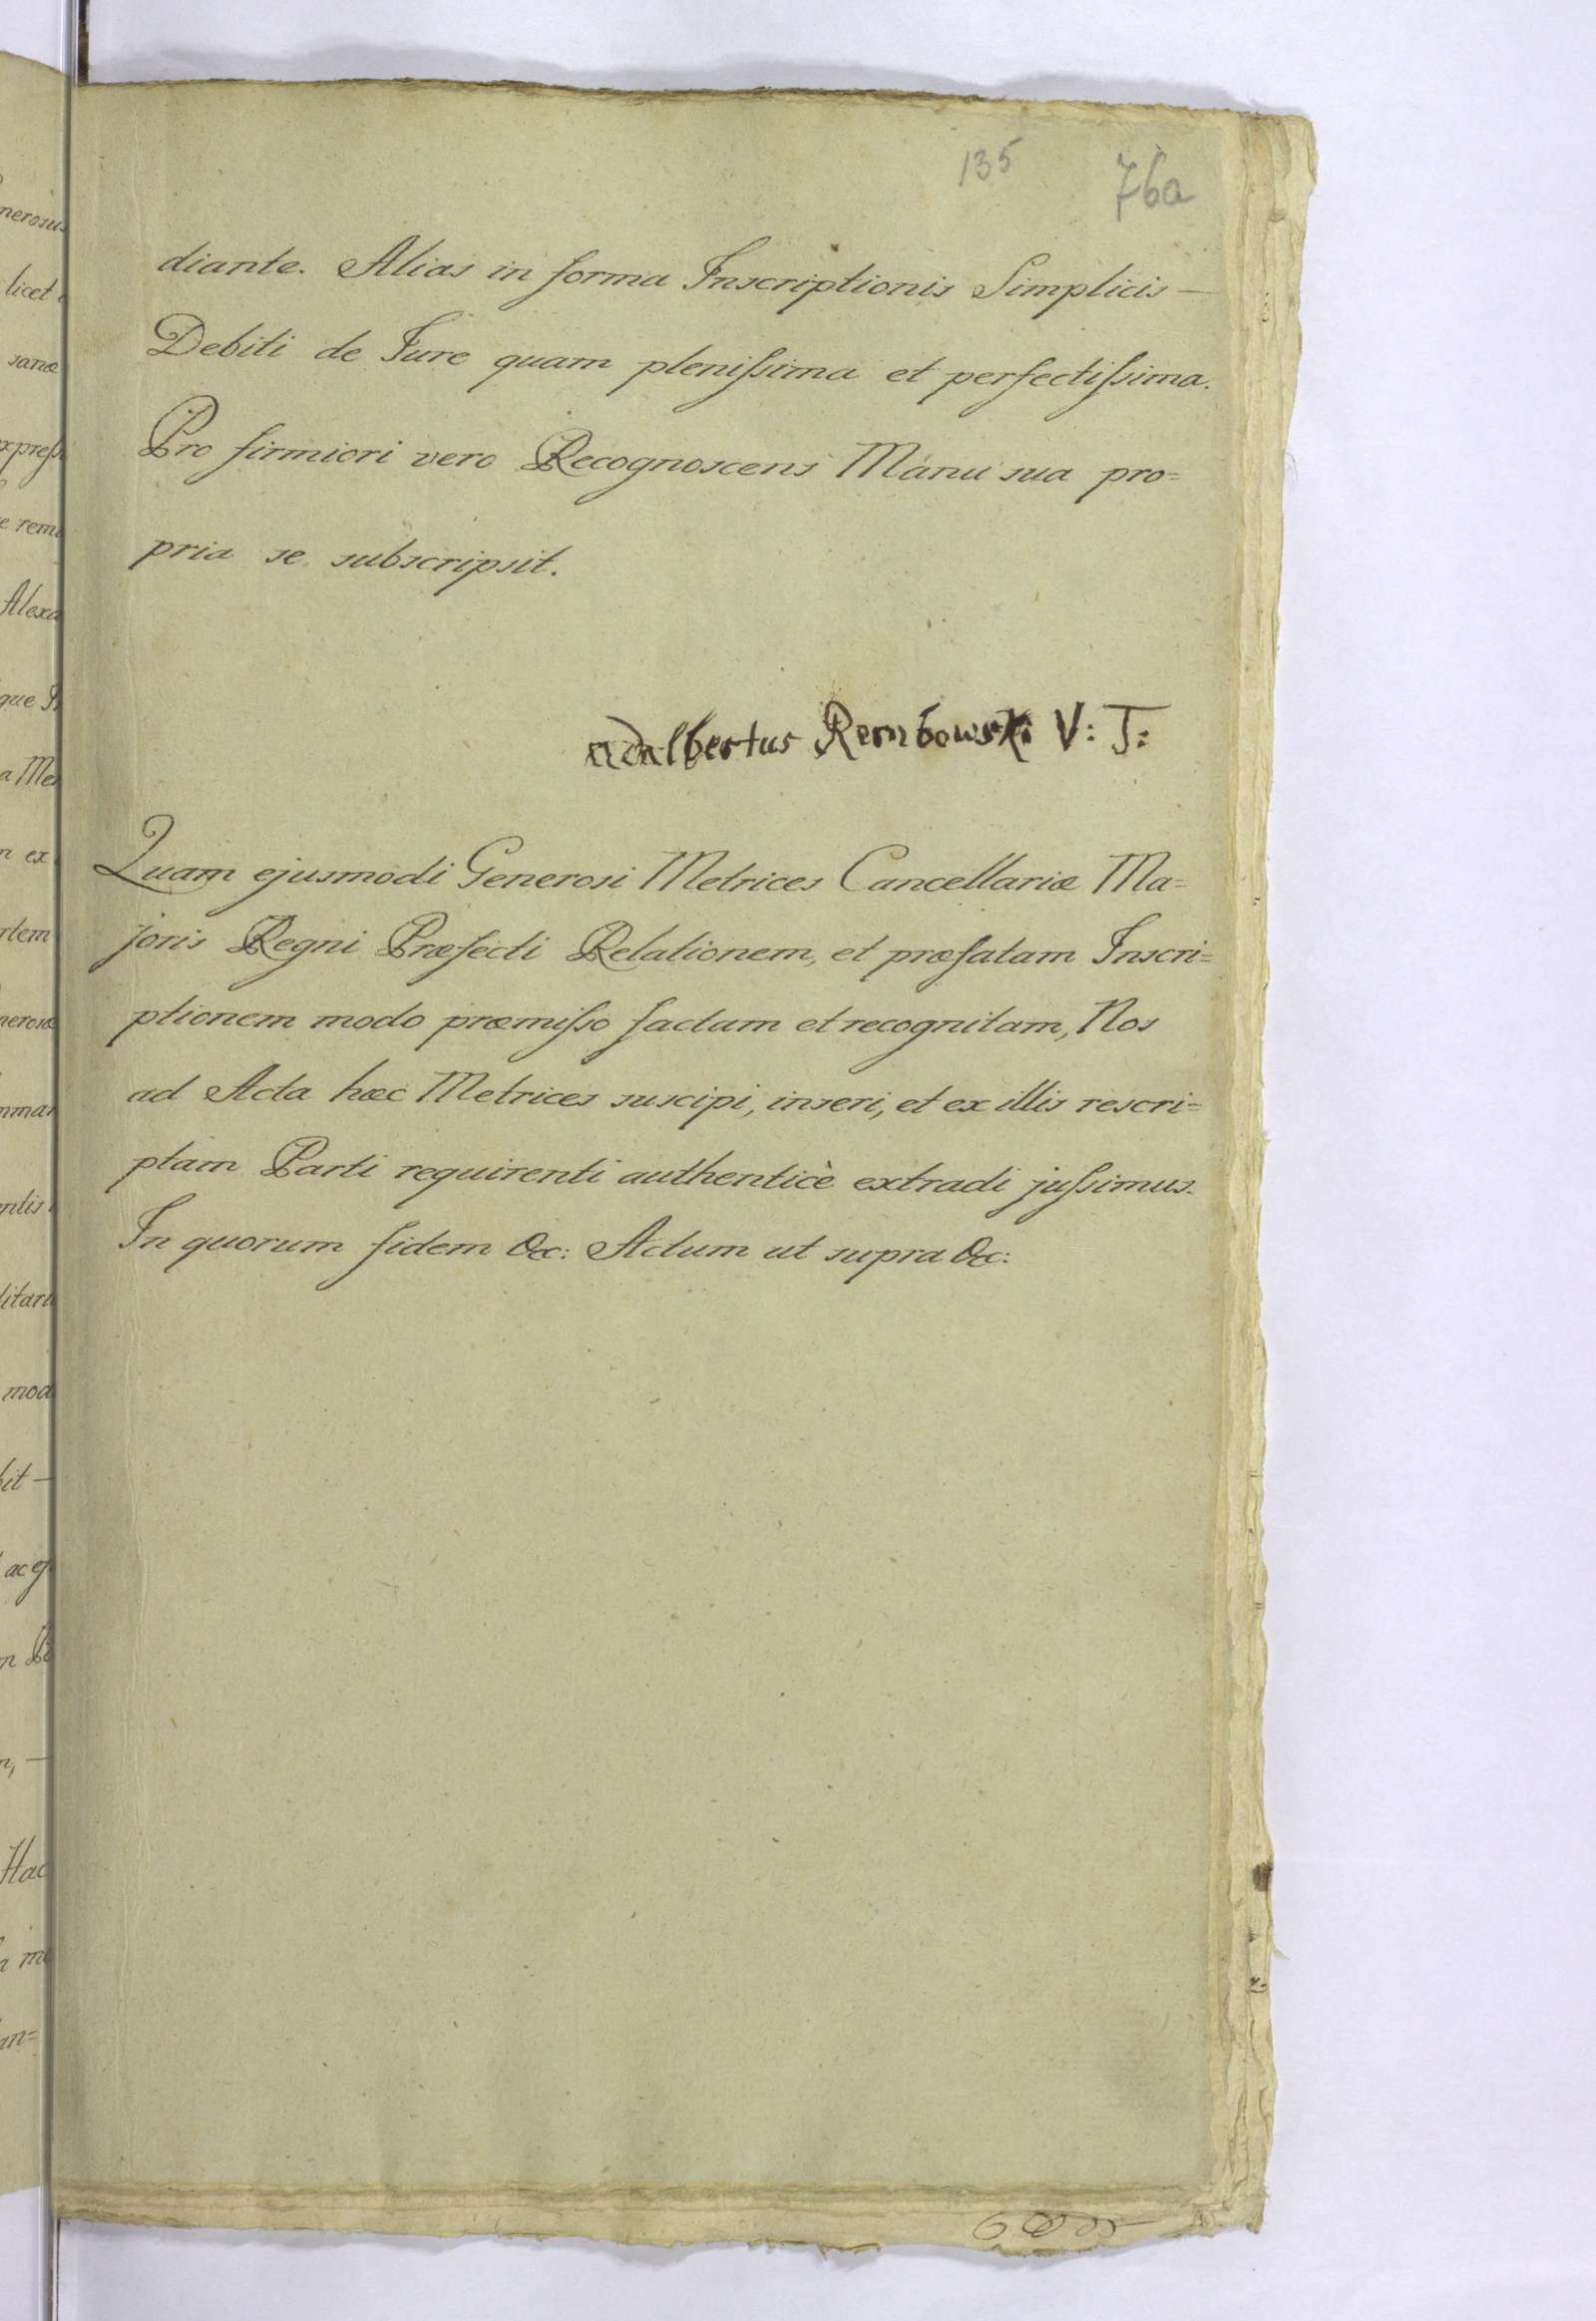 135 76a
diante. Alias in forma Inscriptionis Simplicis —
Debiti de Jure quam plenissima et perfectissima.
Pro firmiori vero Recognoscens Manu sua pro=
pria se subscripsit.
Adalbertus Rembowski V: T:
Quam ejusmodi Generosi Metrices Cancellariæ Ma=
joris Regni Præfecti Relationem, et præfatam Inscri=
ptionem modo præmisso factam et recognitam, Nos
ad Acta hæc Metrices suscipi, inseri, et ex illis rescri=
ptam Parti requirenti authenticè extradi jussimus.
In quorum fidem &c: Actum ut supra &c: